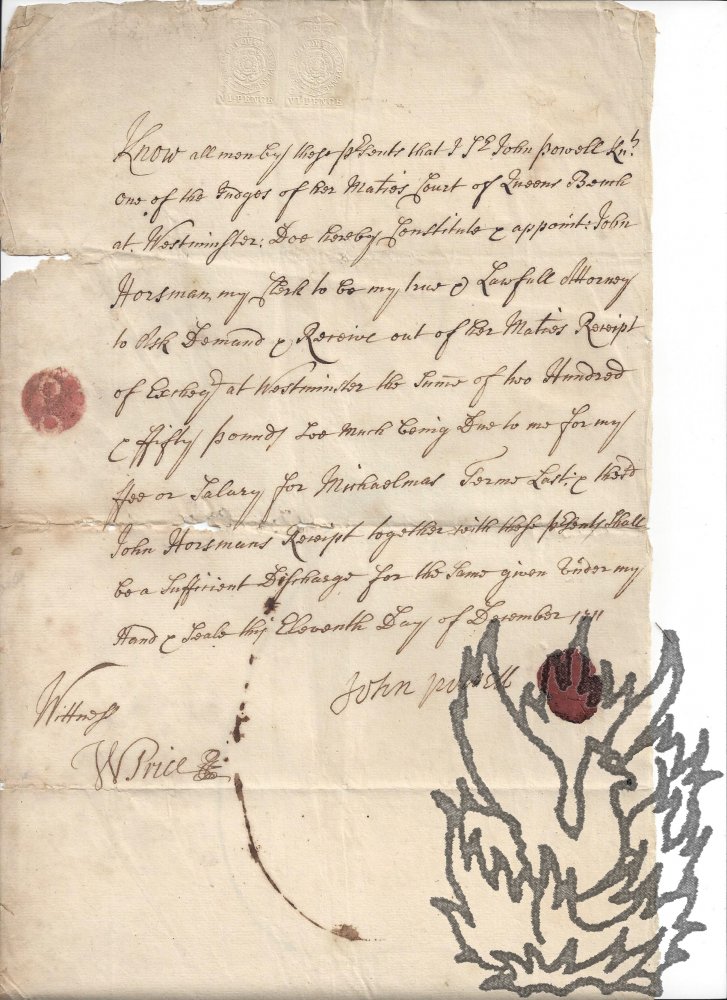 VI PENCE VI PENCE
Know all men by these pʳsents that I Sʳ John Powell Knᵗ
one of the Judges of her Maties Court of Queens Bench
at Westminster: Doe hereby Constitute & appoint: John
Horsman my Clerk to be my true & Lawfull Attorney
to Ask Demand & Receive out of her Maties Receipt
of Excheqʳ at Westminster the Sume of two Hundred
& ffifty pounds Soe much being Due to me for my
ffee or Salary for Michaelmas Terme Last: & the sᵈ
John Horsmans Receipt together with these pʳsents Shall
be a Sufficient Discharge for the Same given Under my
Hand & Seale this Eleventh Day of December 1711
John Powell
Wittness
W Price